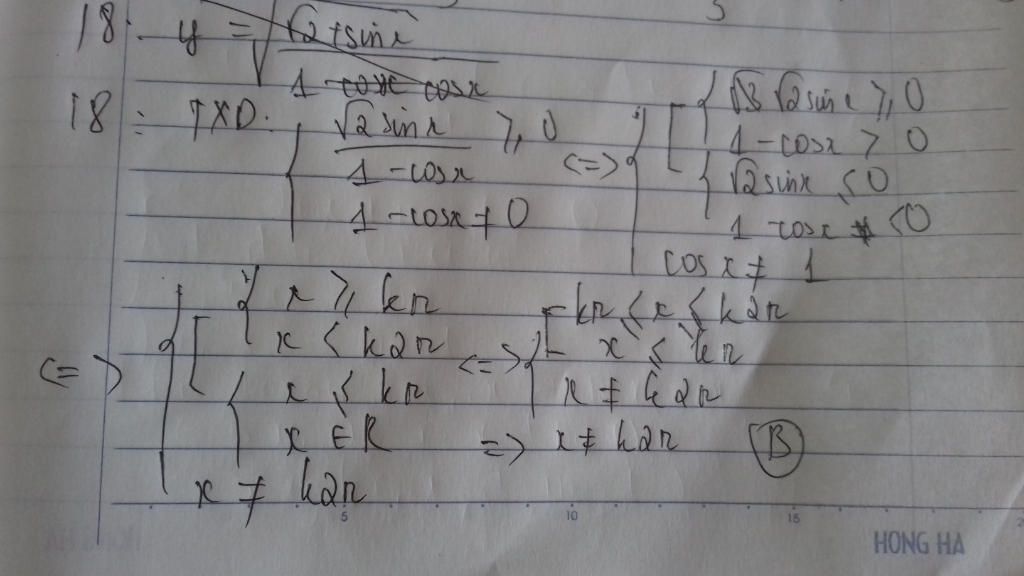 18. y = √(√2 + sinx
1 - cosx cosx
18: TXD: { √2 sinx / 1 - cosx ≥ 0
1 - cosx ≠ 0
<=> { [ { √3 √2 sinx ≥ 0
1 - cosx > 0
{ √2 sinx ≤ 0
1 cosx < 0
cos x ≠ 1
<=> { [ { x ≥ kπ
x < k2π
{ x ≤ kπ
x ∈ R
x ≠ k2π
<=> { [ kπ ≤ x ≤ k2π
x ≤ kπ
x ≠ k2π
=> x ≠ k2π (B)
5 10 15
HONG HA